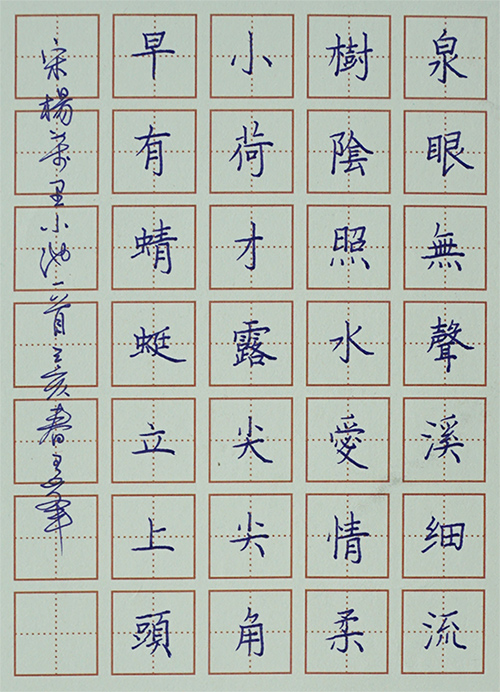 泉眼無聲溪细流
樹陰照水愛情柔
小荷才露尖尖角
早有蜻蜓立上頭
宋楊萬里小池一首己亥春